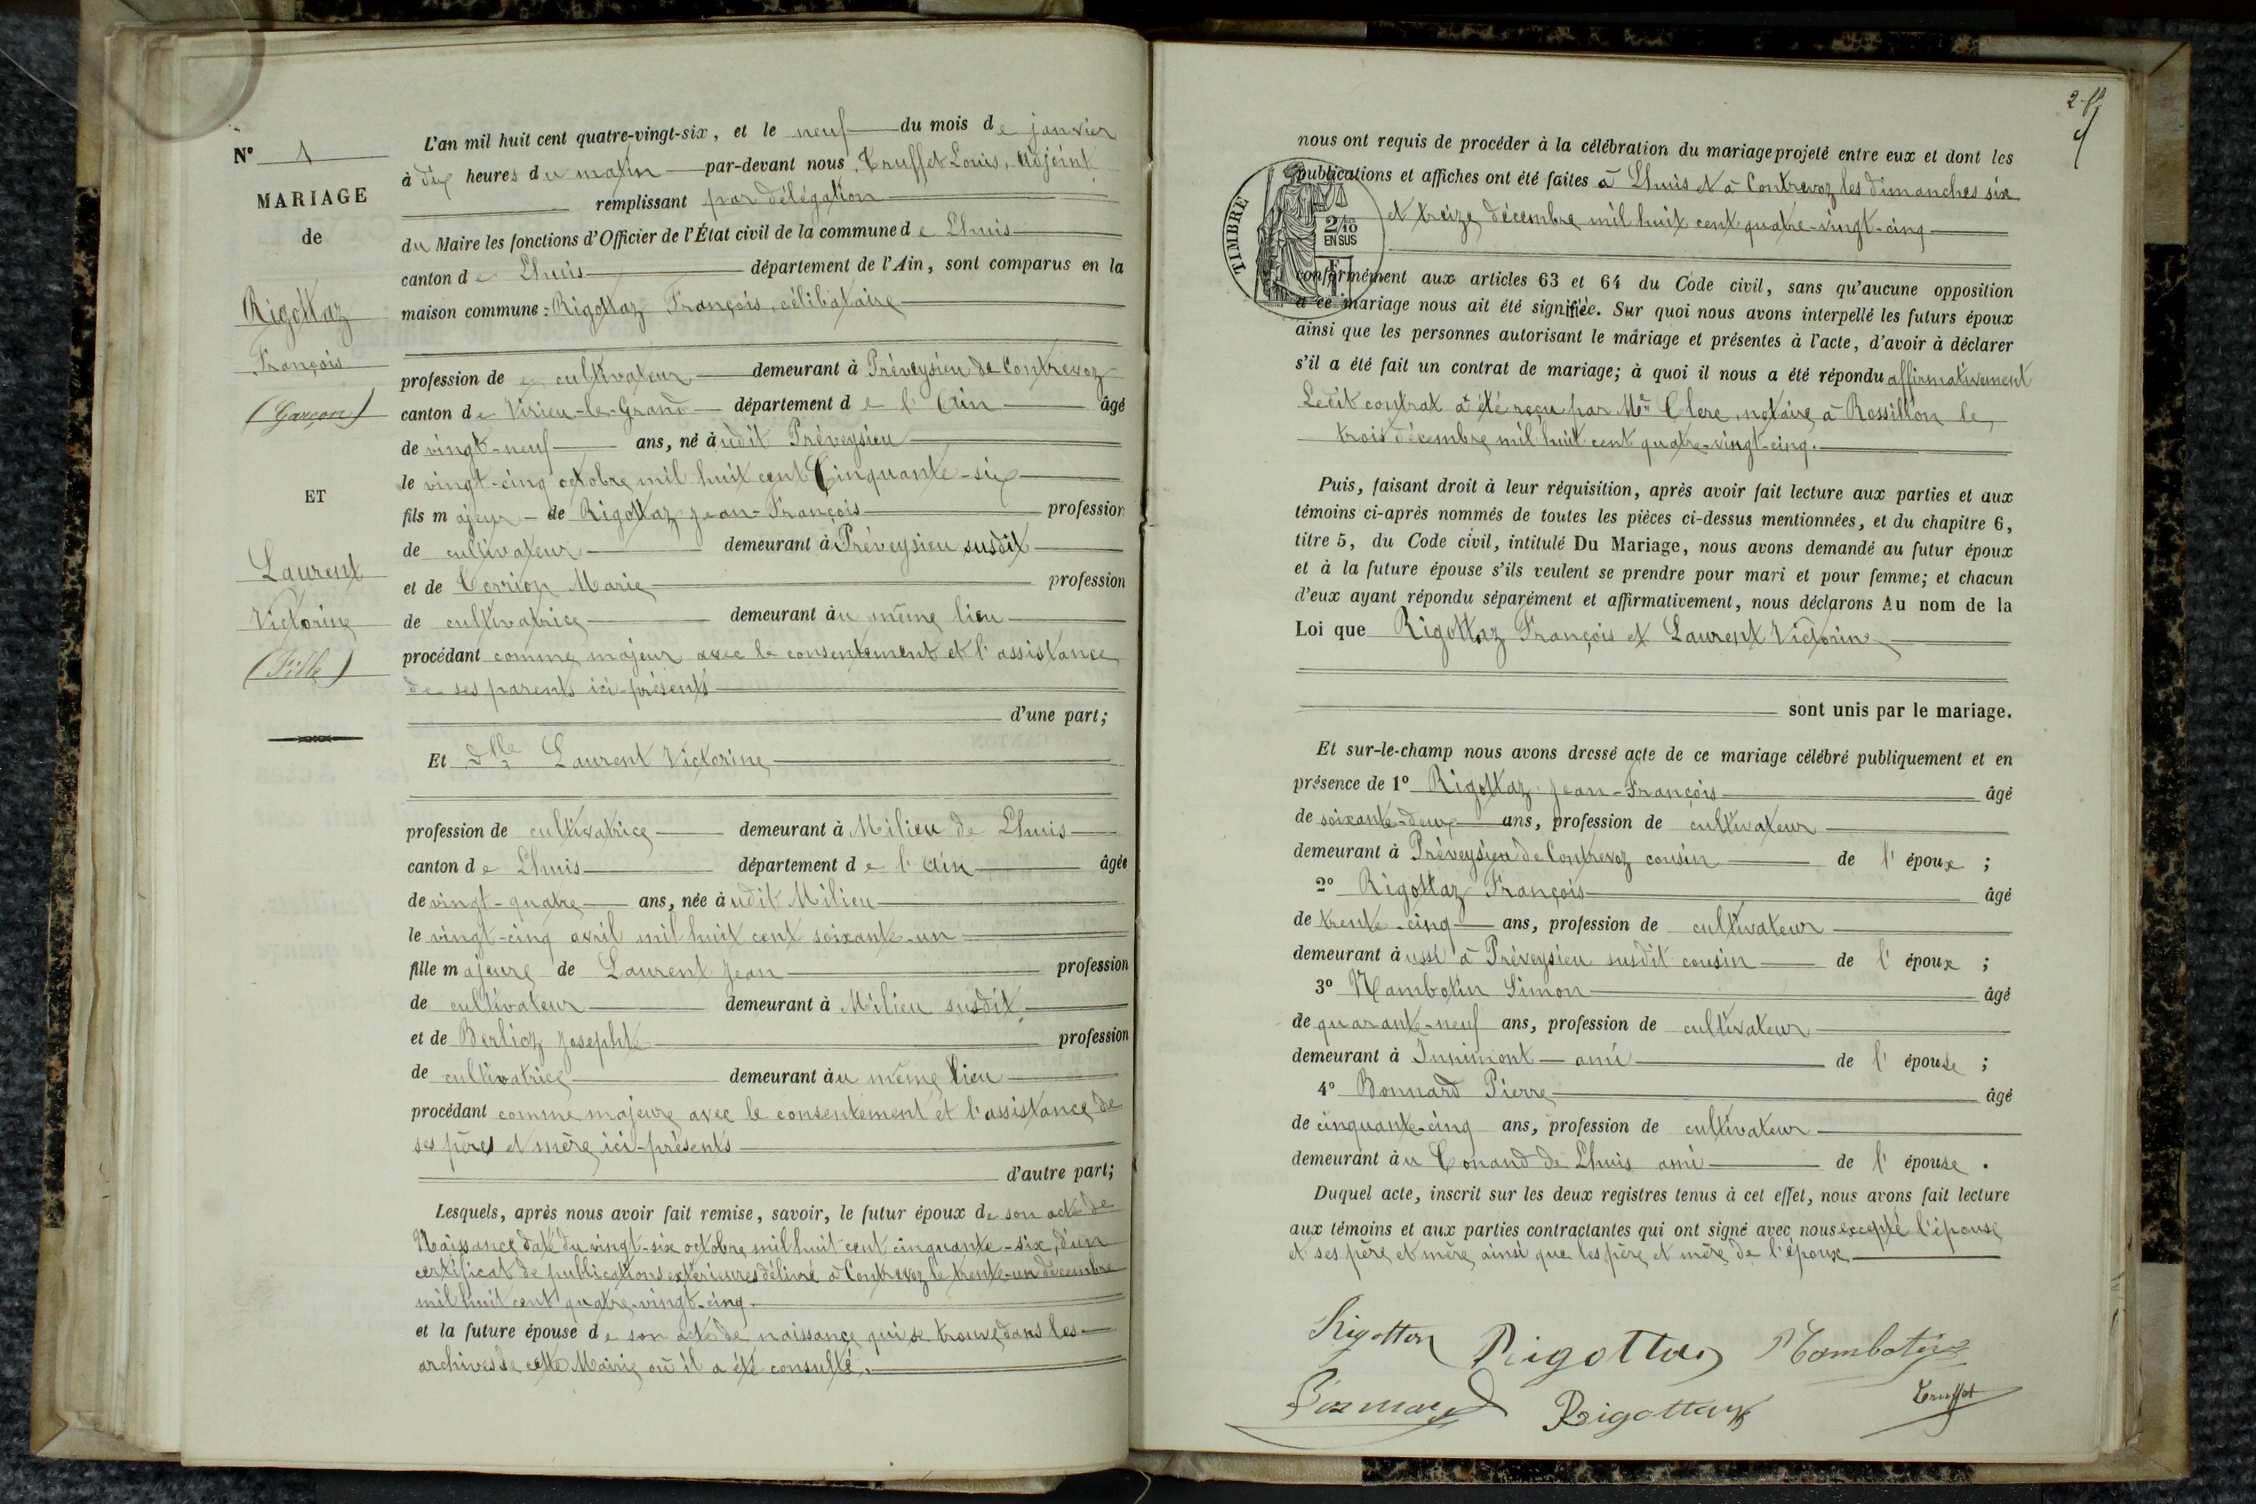 N° 1
MARIAGE
de
Rigottaz
François
(Garçon)
ET
Laurent
Victorine
(Fille)
L'an mil huit cent quatre-vingt-six, et le neuf du mois de janvier
à dix heures du matin par-devant nous Truffet Louis, Adjoint
remplissant par délégation
du Maire les fonctions d'Officier de l'État civil de la commune de Lhuis
canton de Lhuis département de l'Ain, sont comparus en la
maison commune : Rigottaz François, célibataire
profession de cultivateur demeurant à Préveysieu de Contrevoz
canton de Virieu-le-Grand département de l'Ain âgé
de vingt-neuf ans, né audit Préveysieu
le vingt-cinq octobre mil huit cent Cinquante-six
fils majeur de Rigottaz Jean-François profession
de cultivateur demeurant à Préveysieu susdit
et de Marie profession
de cultivatrice demeurant au même lieu
procédant comme majeur avec le consentement et l'assistance
de ses parents ici-présents
d'une part;
Et Dlle Laurent Victorine
profession de cultivatrice demeurant à Milieu de Lhuis
canton de Lhuis département de l'Ain âgée
de vingt-quatre ans, née audit Milieu
le vingt-cinq avril mil huit cent soixante-un
fille majeure de Laurent Jean profession
de cultivateur demeurant à Milieu susdit
et de Berlioz Josephte profession
de cultivatrice demeurant au même lieu
procédant comme majeure avec le consentement et l'assistance de
ses pères et mère ici-présents
d'autre part;
Lesquels, après nous avoir fait remise, savoir, le futur époux de son acte de
Naissance daté du vingt-six octobre mil huit cent cinquante-six, d'un
certificat de publications extérieures délivré à Contrevoz le trente-un décembre
mil huit cent quatre-vingt-cinq
et la future épouse de son acte de naissance qui se trouve dans les
archives de cette Mairie où il a été consulté.
2
nous ont requis de procéder à la célébration du mariage projeté entre eux et dont les
publications et affiches ont été faites à Lhuis et à Contrevoz les dimanches six
et treize décembre mil huit cent quatre-vingt-cinq
TIMBRE
2/10
EN SUS
conformément aux articles 63 et 64 du Code civil, sans qu'aucune opposition
à ce mariage nous ait été signifiée. Sur quoi nous avons interpellé les futurs époux
ainsi que les personnes autorisant le mariage et présentes à l'acte, d'avoir à déclarer
s'il a été fait un contrat de mariage; à quoi il nous a été répondu affirmativement
Ledit contrat a été reçu par Me Clerc, notaire à Rossillon le
trois décembre mil huit cent quatre-vingt-cinq.
Puis, faisant droit à leur réquisition, après avoir fait lecture aux parties et aux
témoins ci-après nommés de toutes les pièces ci-dessus mentionnées, et du chapitre 6,
titre 5, du Code civil, intitulé Du Mariage, nous avons demandé au futur époux
et à la future épouse s'ils veulent se prendre pour mari et pour femme; et chacun
d'eux ayant répondu séparément et affirmativement, nous déclarons Au nom de la
Loi que Rigottaz François et Laurent Victorine
sont unis par le mariage.
Et sur-le-champ nous avons dressé acte de ce mariage célébré publiquement et en
présence de 1° Rigottaz Jean-François âgé
de soixante-deux ans, profession de cultivateur
demeurant à Préveysieu de Contrevoz cousin de l'époux ;
2° Rigottaz François âgé
de trente-cinq ans, profession de cultivateur
demeurant aussi à Préveysieu susdit cousin de l'époux ;
3° Nambotin Simon âgé
de quarante-neuf ans, profession de cultivateur
demeurant à Innimont ami de l'épouse ;
4° Bonnard Pierre âgé
de cinquante-cinq ans, profession de cultivateur
demeurant au Conand de Lhuis ami de l'épouse .
Duquel acte, inscrit sur les deux registres tenus à cet effet, nous avons fait lecture
aux témoins et aux parties contractantes qui ont signé avec nous excepté l'épouse
et ses père et mère ainsi que les père et mère de l'époux
Rigottaz Nambotin
Bonnard Rigottaz Truffet